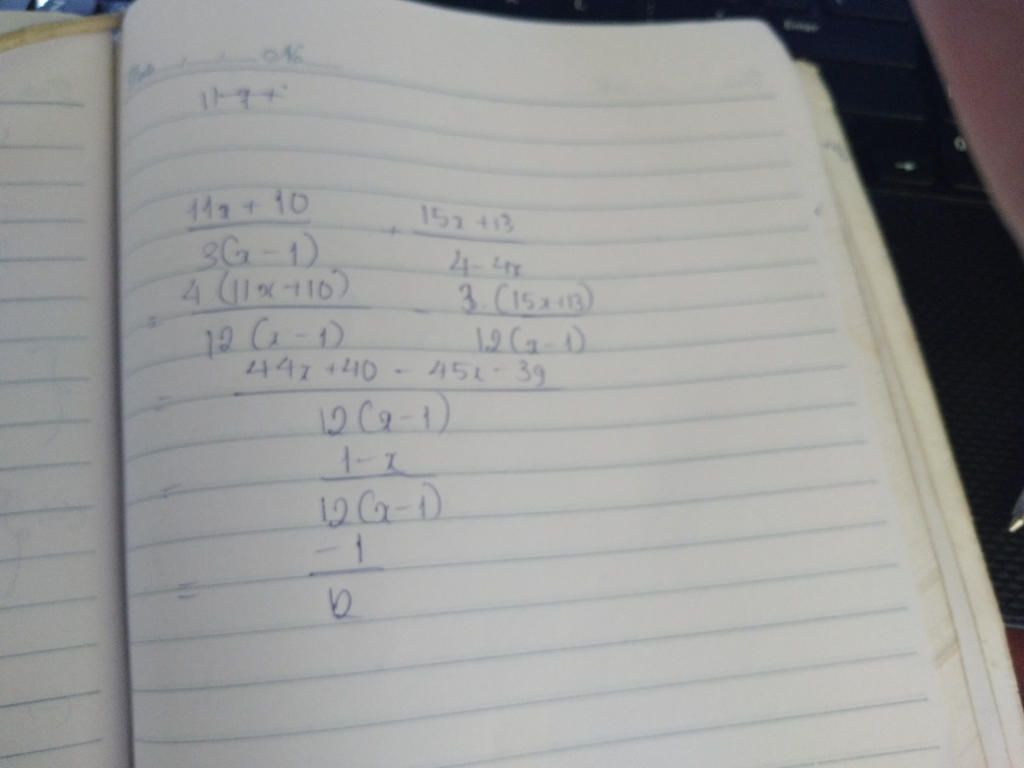 No
11x+
11x + 10 / 3(x - 1) + 15x + 13 / 4 - 4x
= 4 (11x+10) / 12 (x - 1) - 3. (15x+13) / 12(x-1)
= 44x +40 - 45x - 39 / 12(x-1)
= 1-x / 12(x-1)
= -1 / 12